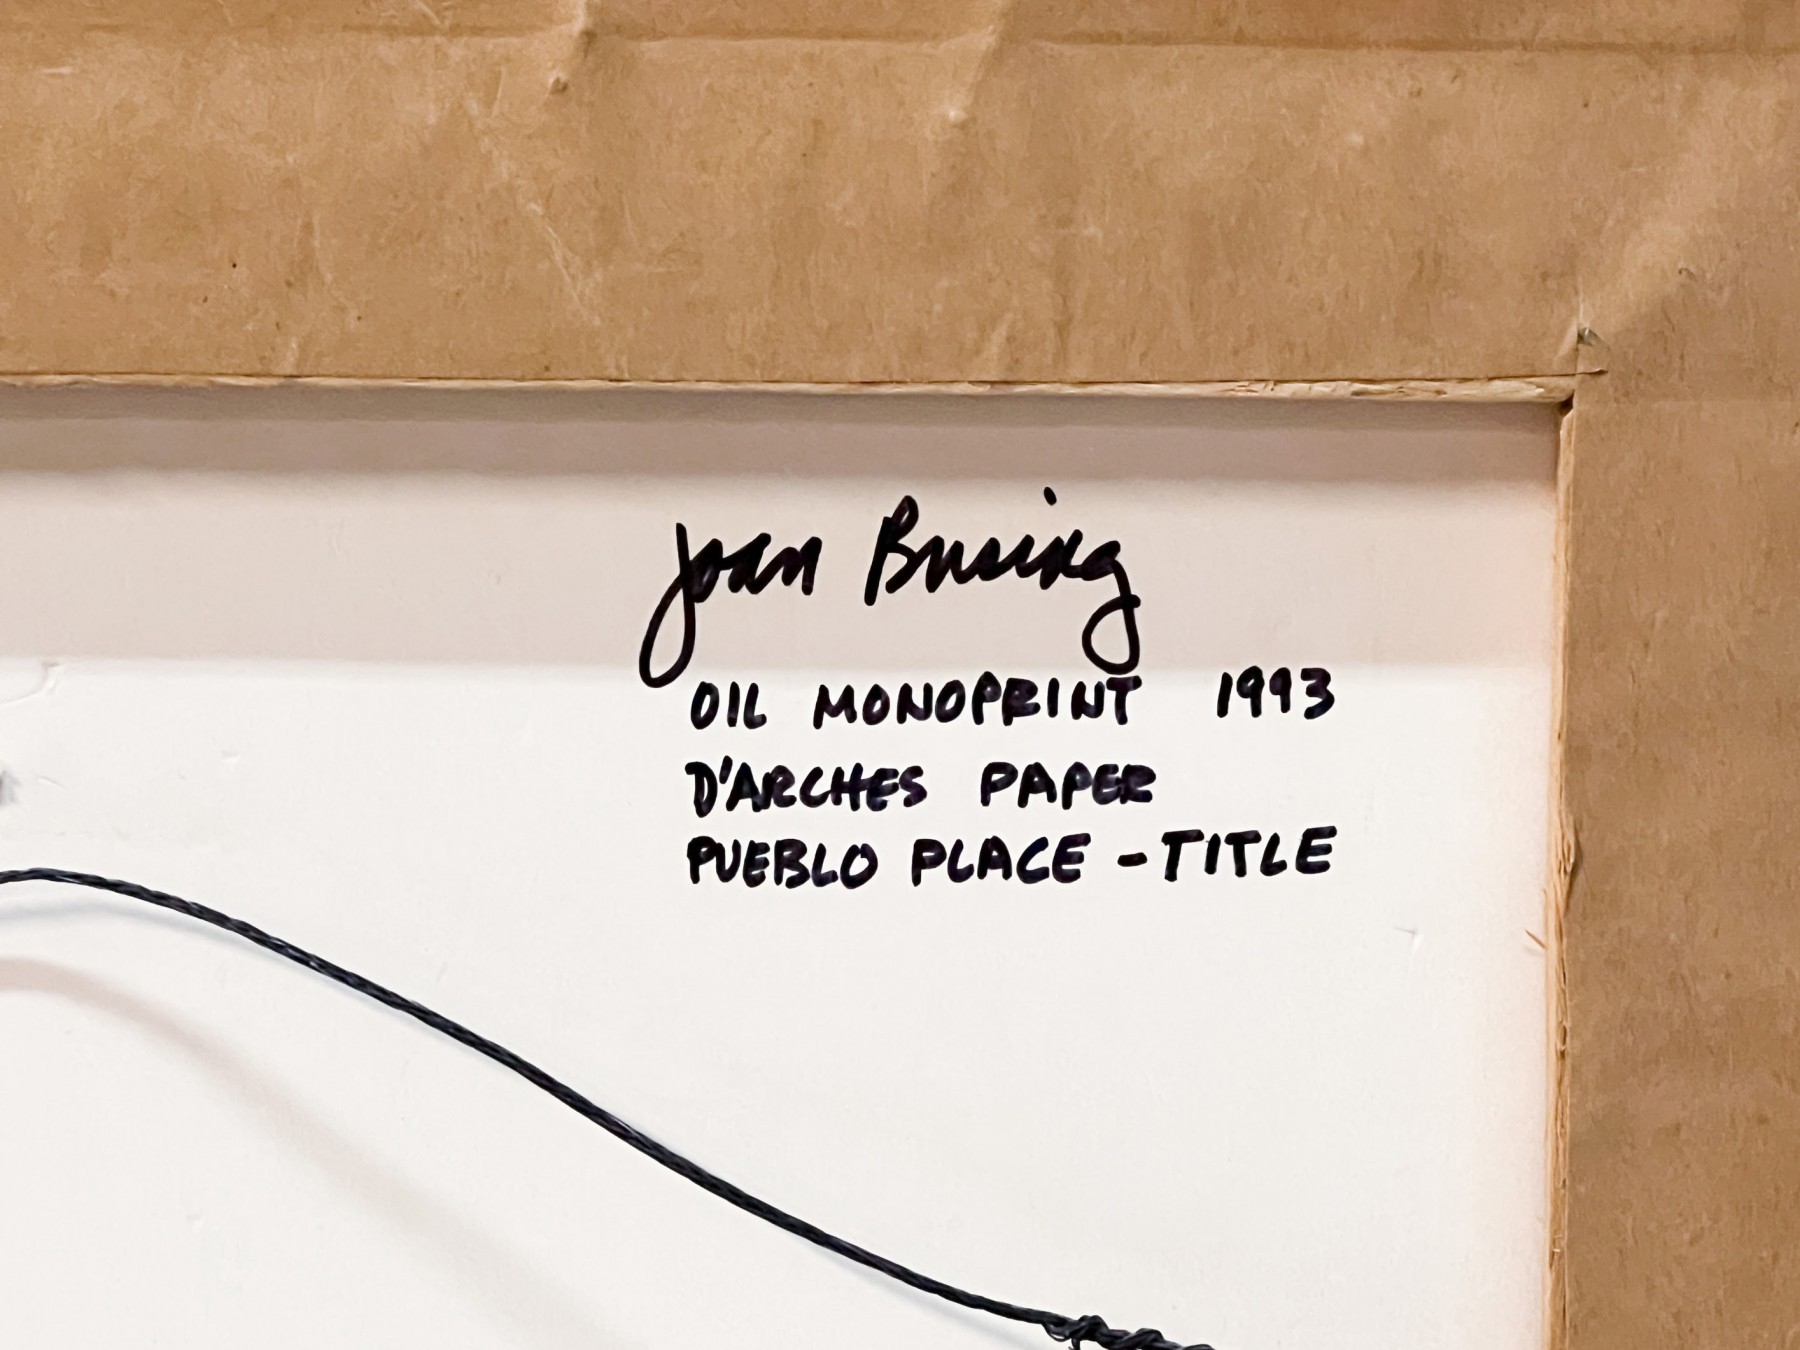 Joan Busing
OIL MONOPRINT 1993
D'ARCHES PAPER
PUEBLO PLACE - TITLE